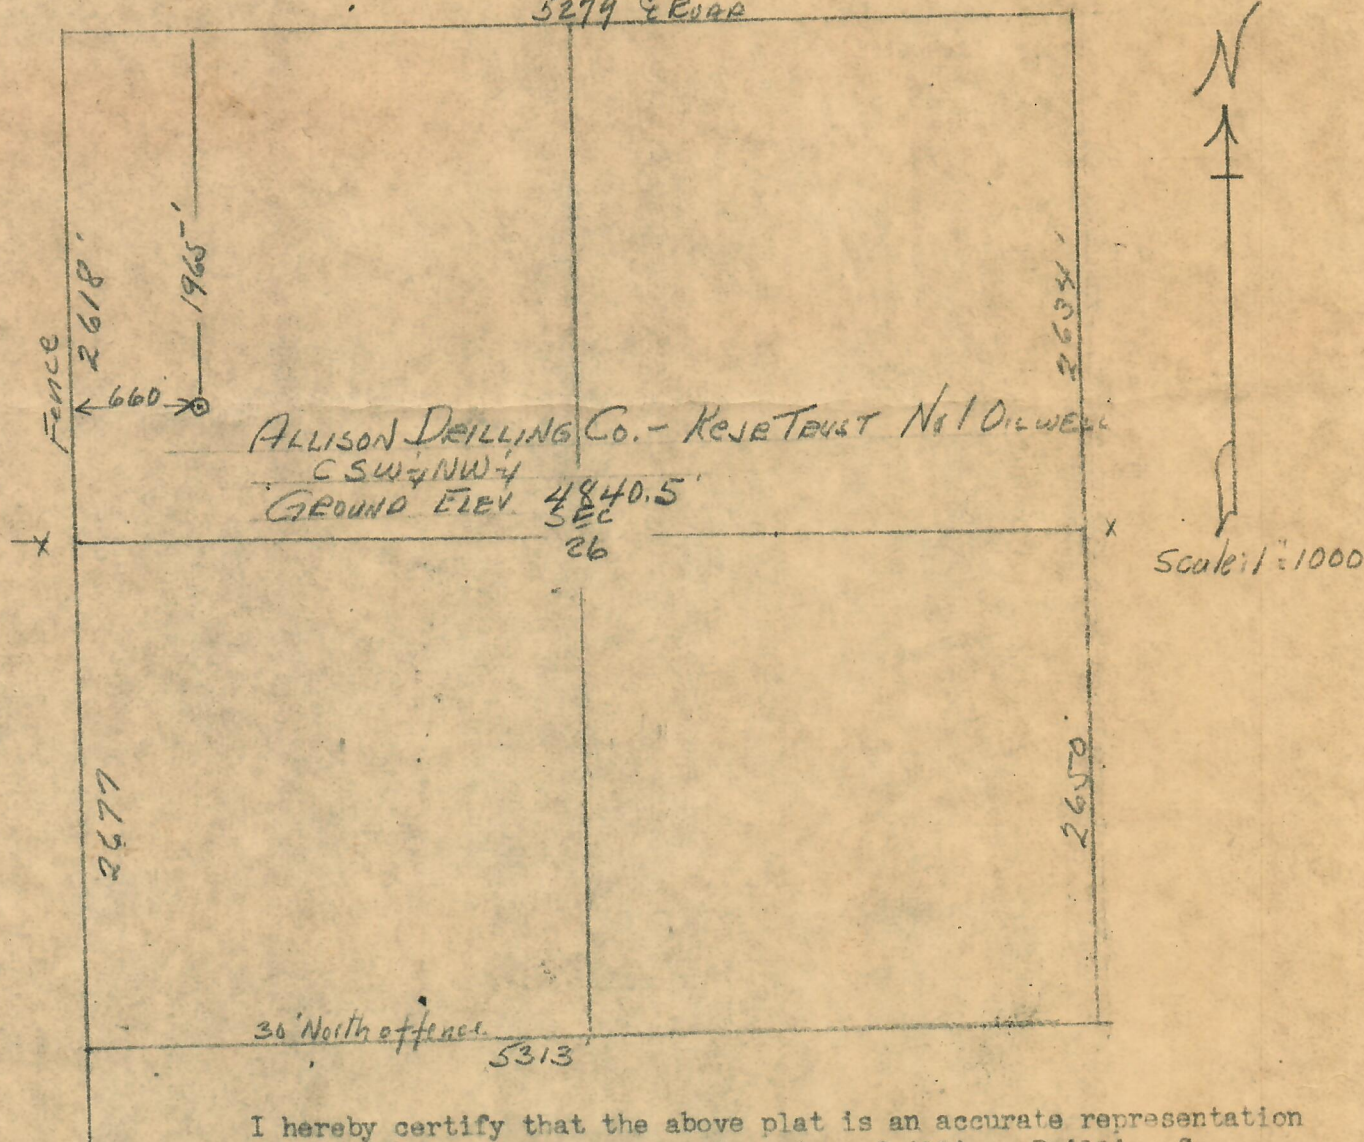 5279 ℄ ROAD
N
1965'
2618'
Fence
2634'
660
ALLISON DRILLING Co. - TRUST No 1 OILWELL
C SW¼ NW¼
GROUND ELEV 4840.5'
SEC
26
x
x
Scale: 1"=1000
2677
2650
30' North of fence
5313
I hereby certify that the above plat is an accurate representation